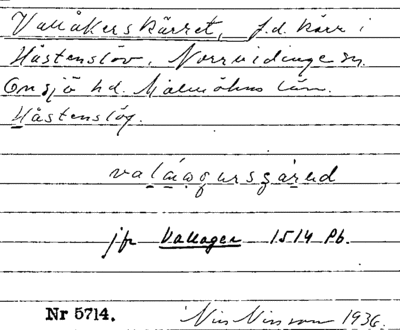 Vallåkerskärret, f.d. kärr i
Håstenslöv, Norrvidinge sn.
Onsjö hd. Malmöhus län.
Håstenslög.
jfr Vallager 1514 Pb.
Nr 5714. Nils Nilsson 1936.